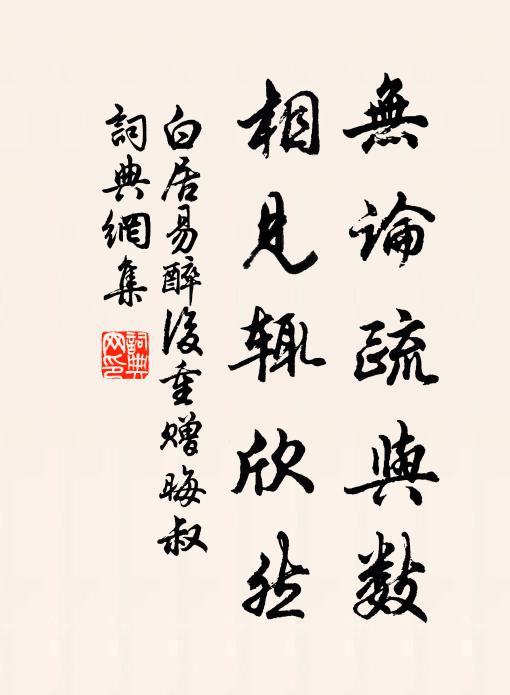 無論疏與數
相見輒欣然
白居易醉後重赠晦叔
詞典網集
詞典网印